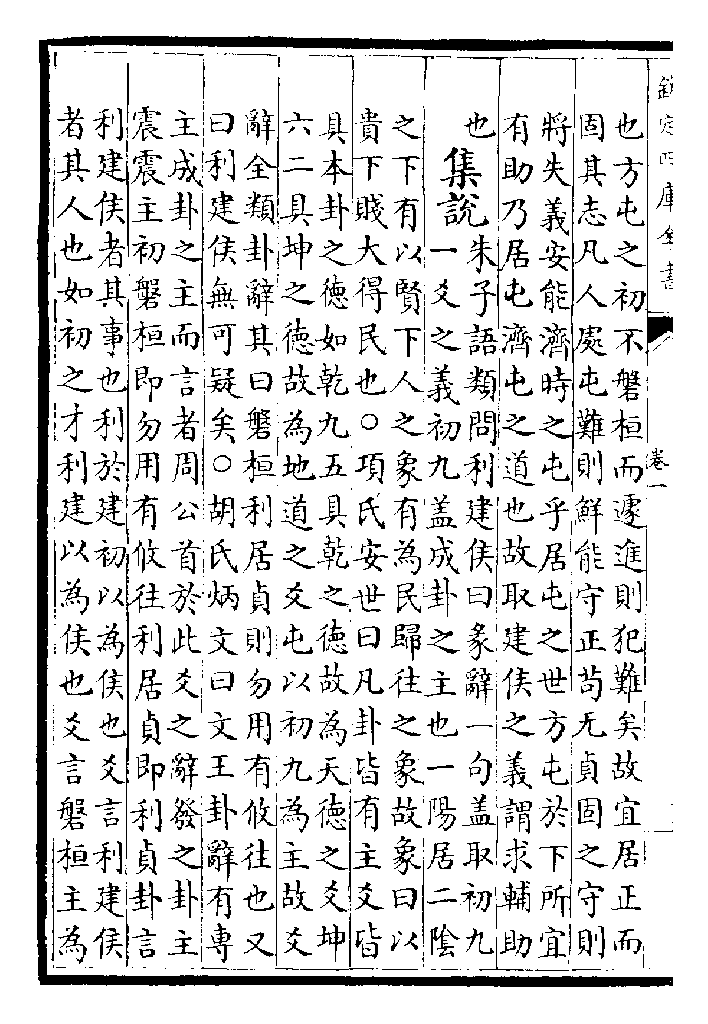 欽定四庫全書
卷一
也方屯之初不磐桓而遽進則犯難矣故宜居正而
固其志凡人處屯難則鮮能守正苟无貞固之守則
將失義安能濟時之屯乎居屯之世方屯於下所宜
有助乃居屯濟屯之道也故取建侯之義謂求輔助
也
集說
朱子語類問利建侯曰彖辭一句蓋取初九
一爻之義初九蓋成卦之主也一陽居二陰
之下有以賢下人之象有為民歸往之象故象曰以
貴下賤大得民也○項氏安世曰凡卦皆有主爻皆
具本卦之德如乾九五具乾之德故為天德之爻坤
六二具坤之德故為地道之爻屯以初九為主故爻
辭全類卦辭其曰磐桓利居貞則勿用有攸往也又
曰利建侯無可疑矣○胡氏炳文曰文王卦辭有專
主成卦之主而言者周公首於此爻之辭發之卦主
震震主初磐桓即勿用有攸往利居貞即利貞卦言
利建侯者其事也利於建初以為侯也爻言利建侯
者其人也如初之才利建以為侯也爻言磐桓主為